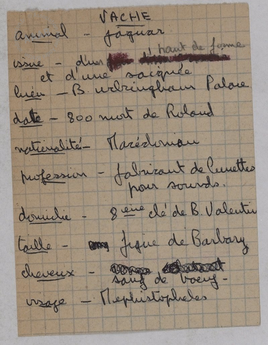 VACHE
animal - Jaguar
issue - d'un haut de forme
et d'une sacquée
lieu - Buckingham Palace
date - 800 mort de Roland
nationalité - Macédonian
profession - fabricant de lunettes
pour sourds.
domicile - 8ème clé de B. Valentin
taille - figue de Barbary
cheveux - sang de boeuf
visage - Mephistopheles